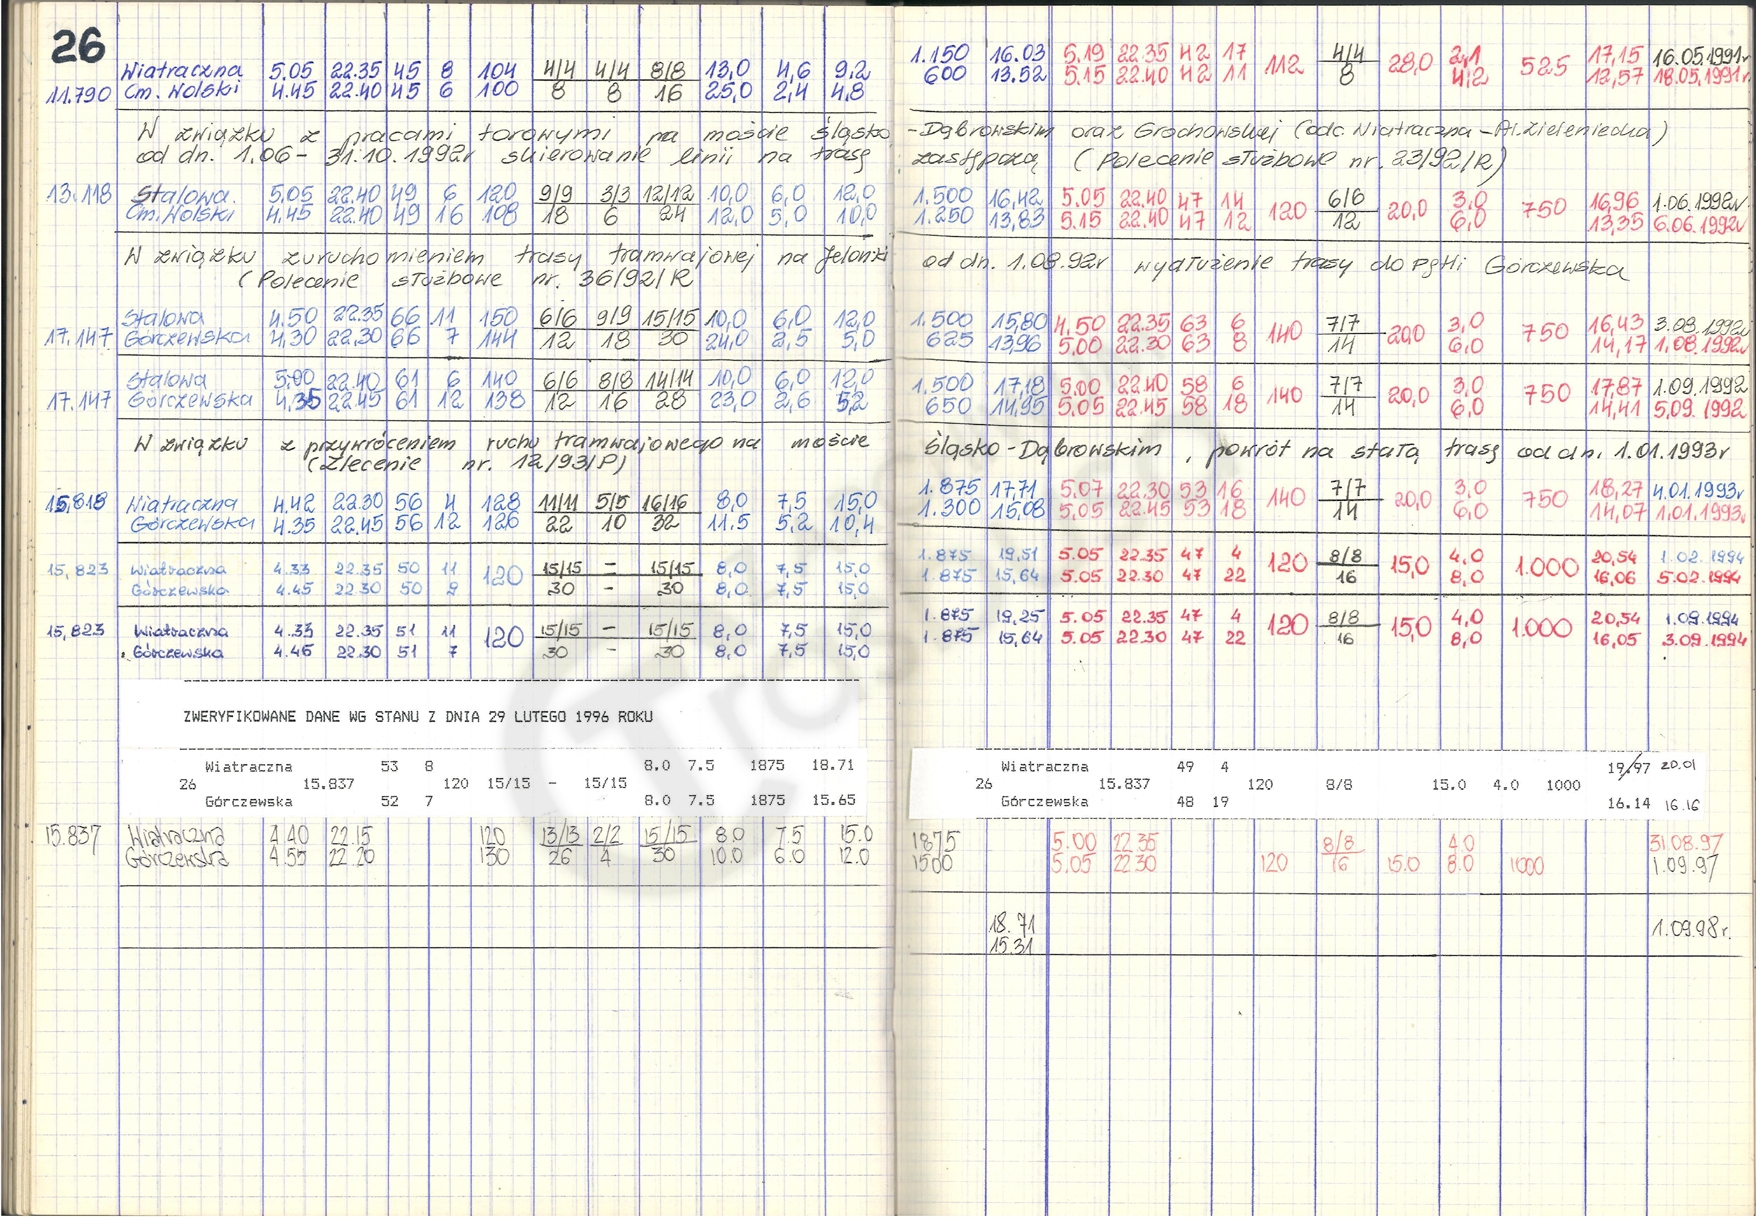 26
Wiatraczna 5.05 22.35 45 8 104 4/4 4/4 8/8 13,0 4,6 9,2 1.150 16.03 5,19 22.35 42 17 112 4/4 28,0 2,1 525 17,15 16.05.1991r
11.790 Cm. Wolski 4.45 22.40 45 6 100 8 8 16 25,0 2,4 4,8 600 13.52 5.15 22.40 42 11 8 4,2 12,57 18.05.1991r
W związku z pracami torowymi na moście Śląsko-Dąbrowskim oraz Grochowskiej (odc. Wiatraczna – Al. Zieleniecka)
od dn. 1.06 – 31.10.1992r skierowanie linii na trasę zastępczą (Polecenie służbowe nr. 23/92/R)
13.118 Stalowa. 5.05 22.40 49 6 120 9/9 3/3 12/12 10,0 6,0 12,0 1.500 16,42 5.05 22.40 47 14 120 6/6 20,0 3,0 750 16,96 1.06.1992r
Cm. Wolski 4.45 22.40 49 16 108 18 6 24 12,0 5,0 10,0 1.250 13,83 5.15 22.40 47 12 12 6,0 13,35 6.06.1992r
W związku z uruchomieniem trasy tramwajowej na Jelonki od dn. 1.08.92r wydłużenie trasy do pętli Górczewska
(Polecenie służbowe nr. 36/92/R
Stalowa 4.50 22.35 66 11 150 6/6 9/9 15/15 10,0 6,0 12,0 1.500 15,80 4.50 22.35 63 6 140 7/7 20,0 3,0 750 16,43 3.08.1992r
17.147 Górczewska 4,30 22,30 66 7 144 12 18 30 24,0 2,5 5,0 625 13,96 5.00 22.30 63 8 14 6,0 14,17 1.08.1992r
Stalowa 5,00 22.40 61 6 140 6/6 8/8 14/14 10,0 6,0 12,0 1.500 17,18 5,00 22.40 58 6 140 7/7 20,0 3,0 750 17,87 1.09.1992
17.147 Górczewska 4,35 22.45 61 12 138 12 16 28 23,0 2,6 5,2 650 14,95 5,05 22.45 58 18 14 6,0 14,41 5,09.1992
W związku z przywróceniem ruchu tramwajowego na moście Śląsko-Dąbrowskim, powrót na stałą trasę od dn. 1.01.1993r
(Zlecenie nr. 12/93/P)
15,818 Wiatraczna 4.42 22.30 56 4 128 11/11 5/5 16/16 8,0 7,5 15,0 1.875 17.71 5,07 22.30 53 16 140 7/7 20,0 3,0 750 18,27 4.01.1993r
Górczewska 4.35 22.45 56 12 126 22 10 32 11.5 5,2 10,4 1.300 15,08 5,05 22.45 53 18 14 6,0 14,07 1.01.1993r
15,823 Wiatraczna 4.33 22.35 50 11 120 15/15 – 15/15 8,0 7,5 15,0 1.875 19,51 5.05 22.35 47 4 120 8/8 15,0 4,0 1.000 20,54 1.02.1994
Górczewska 4.45 22.30 50 9 30 – 30 8,0 7,5 15,0 1.875 15,64 5.05 22.30 47 22 16 8,0 16,06 5.02.1994
15,823 Wiatraczna 4.33 22.35 51 11 120 15/15 – 15/15 8,0 7,5 15,0 1.875 19,25 5.05 22.35 47 4 120 8/8 15,0 4,0 1.000 20,54 1.09.1994
Górczewska 4.45 22.30 51 7 30 – 30 8,0 7,5 15,0 1.875 15,64 5.05 22.30 47 22 16 8,0 16,05 3.09.1994
ZWERYFIKOWANE DANE WG STANU Z DNIA 29 LUTEGO 1996 ROKU
Wiatraczna 53 8 8.0 7.5 1875 18.71 Wiatraczna 49 4 19.97 20.01
26 15.837 120 15/15 – 15/15 26 15.837 120 8/8 15.0 4.0 1000
Górczewska 52 7 8.0 7.5 1875 15.65 Górczewska 48 19 16.14 16.16
15.837 Wiatraczna 4.40 22.15 120 13/13 2/2 15/15 8.0 7.5 15.0 1875 5.00 22.35 8/8 4.0 31.08.97
Górczewska 4.55 22.20 130 26 4 30 10.0 6.0 12.0 1500 5.05 22.30 120 16 15.0 8.0 1000 1.09.97
18.71 1.09.98r.
15.31